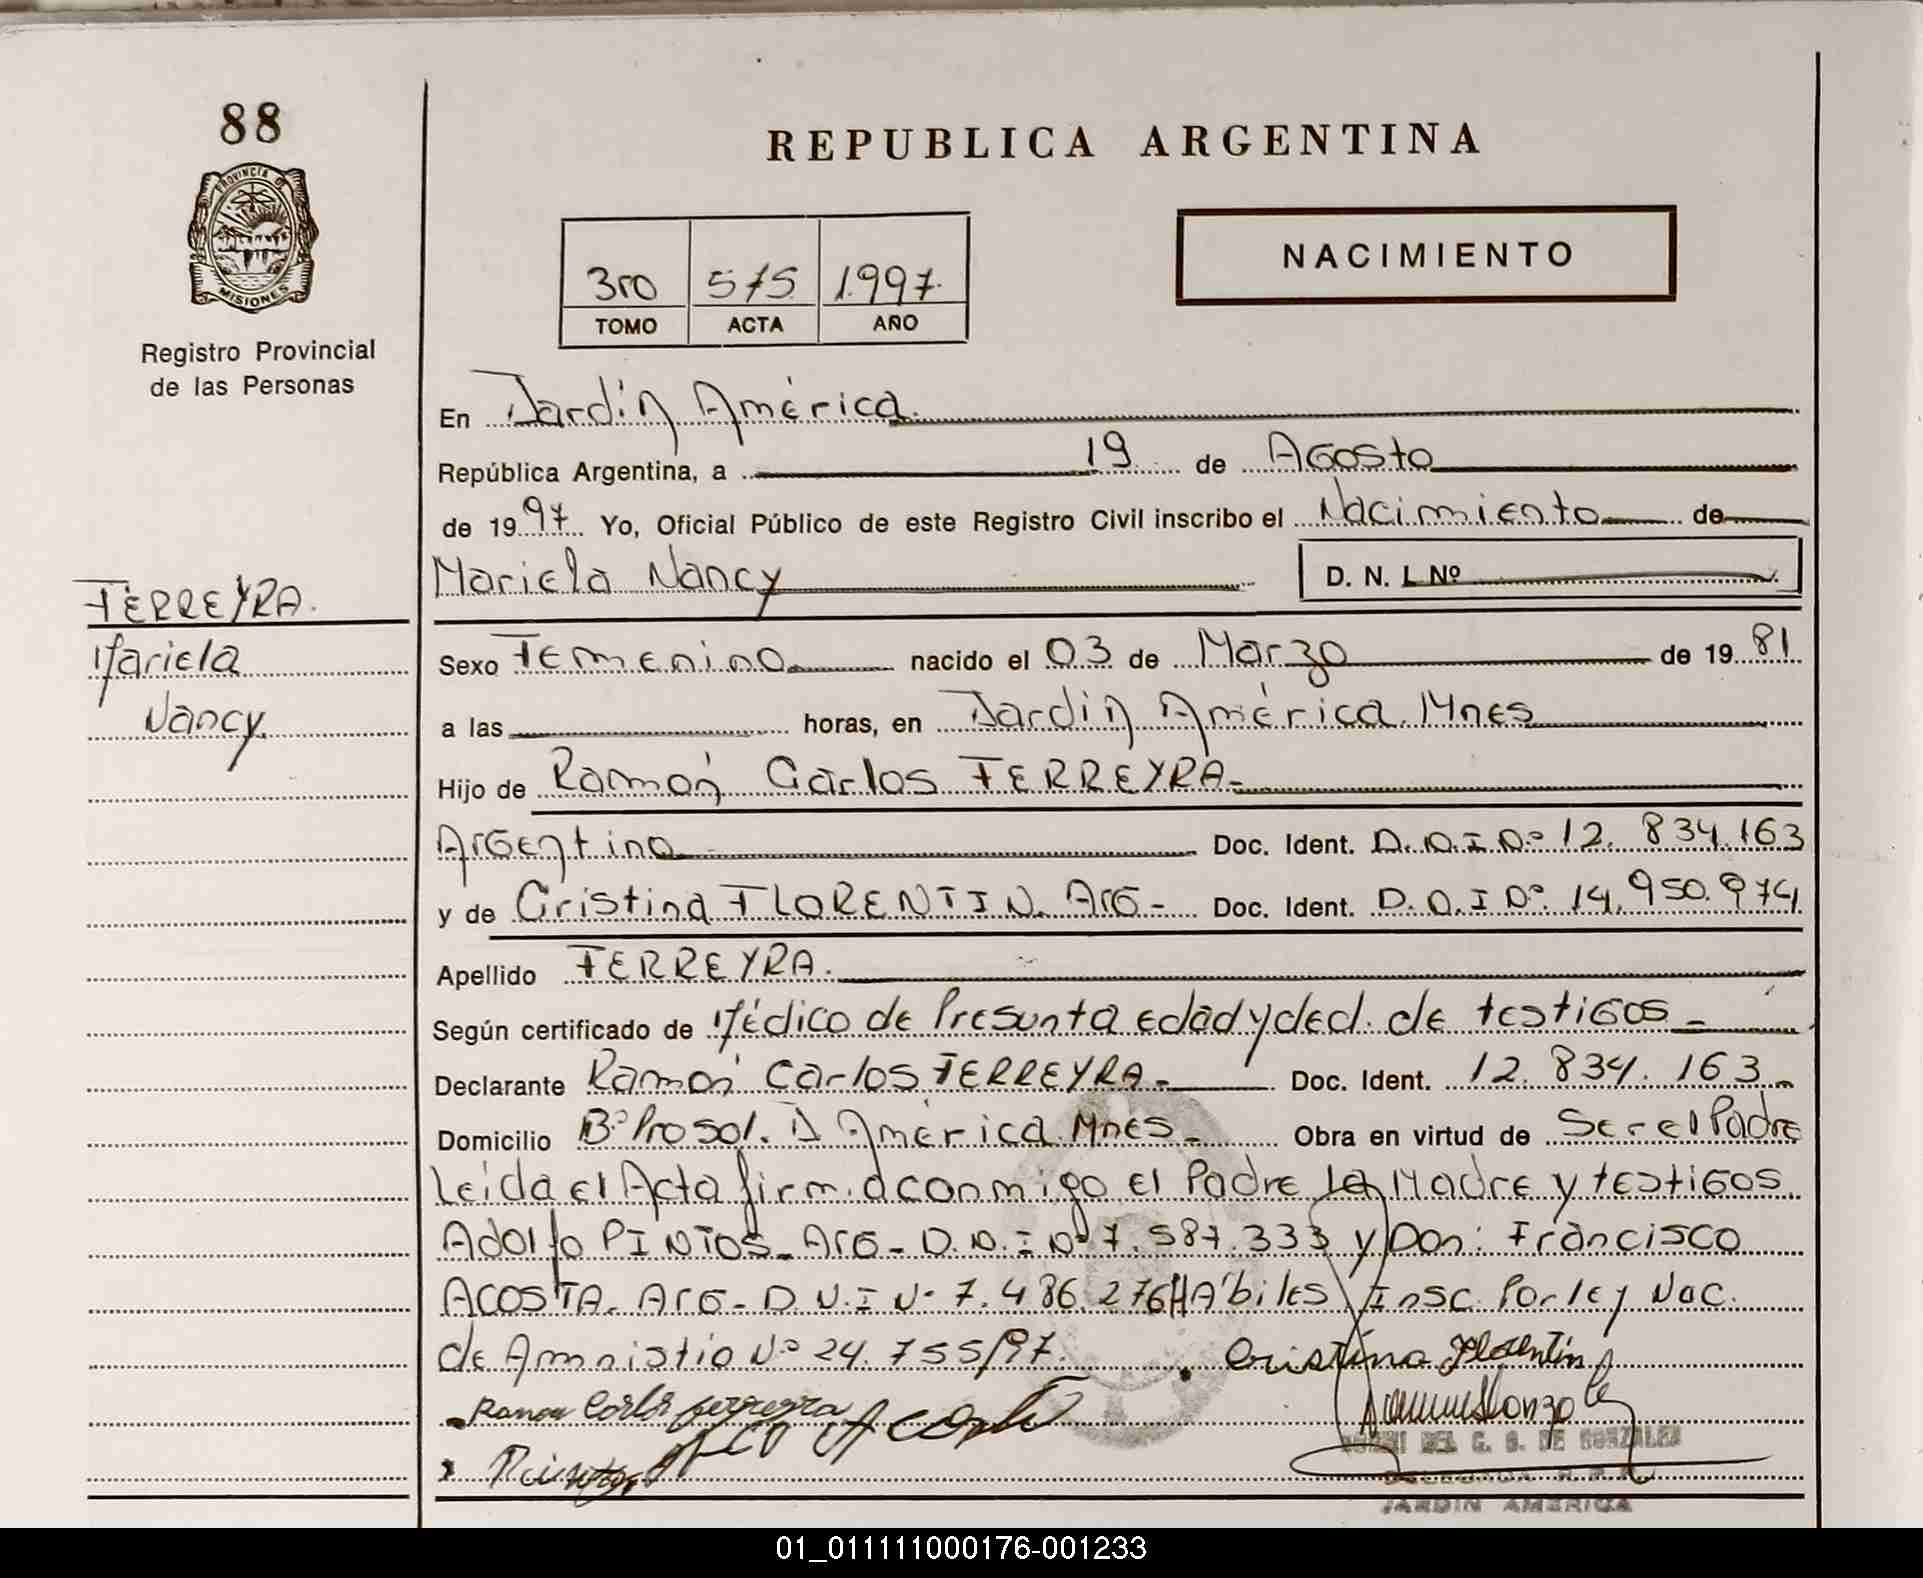 88
REPUBLICA ARGENTINA
PROVINCIA DE
MISIONES
NACIMIENTO
3ro 575 1.997.
TOMO ACTA AÑO
Registro Provincial
de las Personas
En Jardín América.
República Argentina, a 19 de Agosto
de 1997 Yo, Oficial Público de este Registro Civil inscribo el Nacimiento de
Mariela Nancy D. N. I. Nº
FERREYRA.
Mariela
Nancy.
Sexo Femenino nacido el 03 de Marzo de 1981
a las horas, en Jardín América. Mnes
Hijo de Ramón Carlos FERREYRA-
Argentino Doc. Ident. D.N.I Nº 12.834.163
y de Cristina FLORENTIN. Arg- Doc. Ident. D.N.I Nº 14.950.974
Apellido FERREYRA.
Según certificado de Médico de Presunta edad y decl. de testigos-
Declarante Ramón Carlos FERREYRA- Doc. Ident. 12.834.163-
Domicilio Bº Prosol. J América. Mnes- Obra en virtud de Ser el Padre
Leída el Acta firma conmigo el Padre La Madre y testigos
Adolfo PINTOS- Arg- D.N.I Nº 7.587.333 y Don: Francisco
ACOSTA. Arg- D.N.I Nº 7.486.276 HÁbiles Insc. Por ley Nac.
de Amnistia Nº 24.755/97. Cristina Florentin
Ramon Carlos Ferreyra
Fco Acosta
Pintos
DEL C. G. DE GONZALEZ
DELEGADA R.P.P.
JARDIN AMERICA
01_011111000176-001233